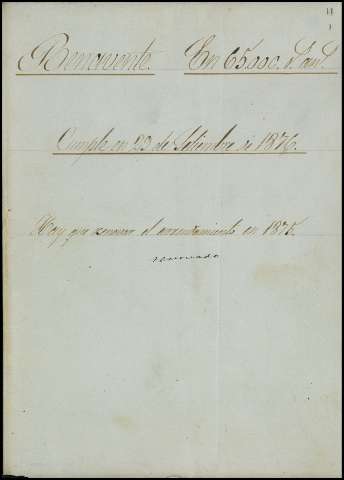 11
Benavente. En 65.000. r. an.
Cumple en 29 de Setiembre de 1876.
Hay que renovar el arrendamiento en 1875.
renovado